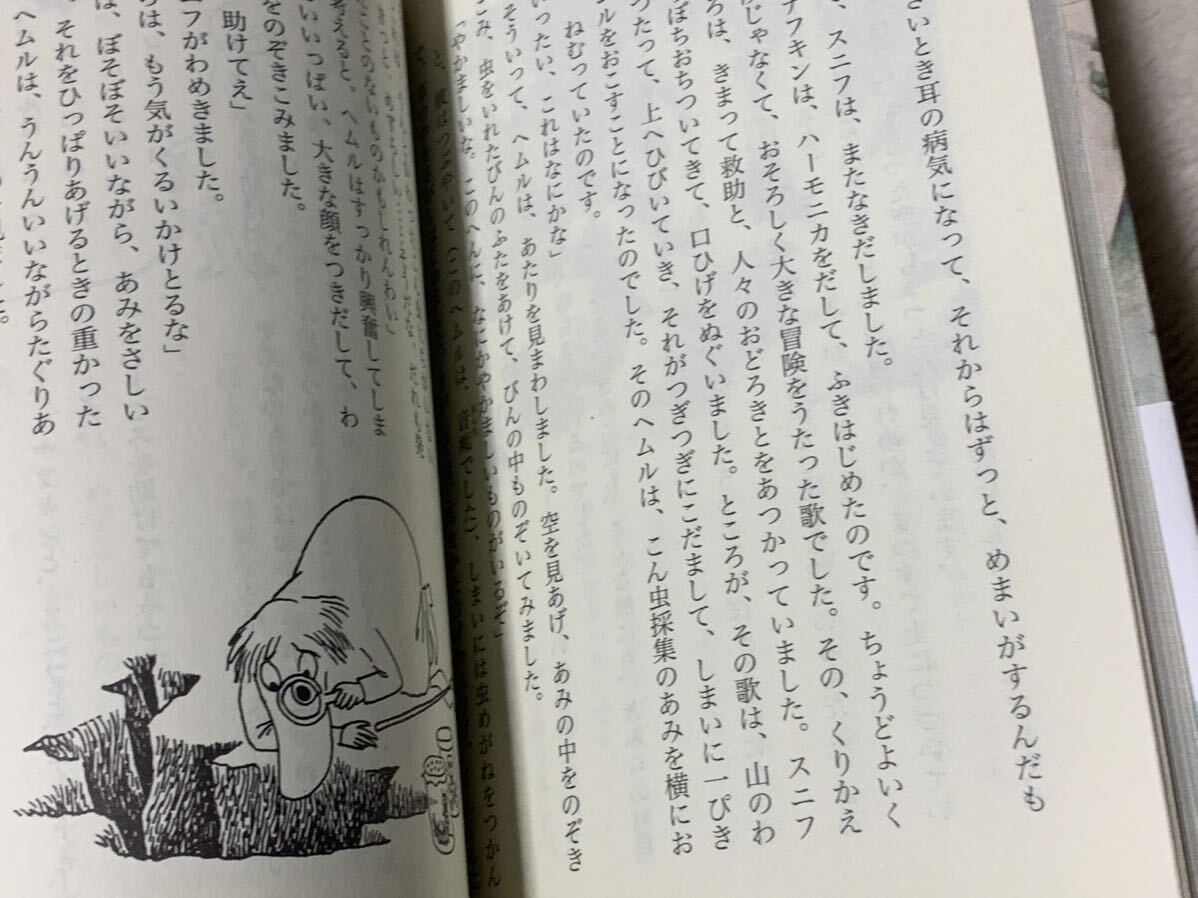 さいとき耳の病気になって、それからはずっと、めまいがするんだも
、スニフは、またなきだしました。
ナフキンは、ハーモニカをだして、ふきはじめたのです。ちょうどよいく
じゃなくて、おそろしく大きな冒険をうたった歌でした。その、くりかえ
ろは、きまって救助と、人々のおどろきとをあつかっていました。スニフ
ぽちおちついてきて、口ひげをぬぐいました。ところが、その歌は、山のわ
つたって、上へひびいていき、それがつぎつぎにこだまして、しまいに一ぴき
ルをおこすことになったのでした。そのヘムルは、こん虫採集のあみを横にお
ねむっていたのです。
いったい、これはなにかな」
そういって、ヘムルは、あたりを見まわしました。空を見あげ、あみの中をのぞき
み、虫をいれたびんのふたをあけて、びんの中ものぞいてみました。
「やかましいな。このへんに、なにかやかましいものがいるぞ」
と、彼はつぶやいて、(このヘムルは、音痴でした)、しまいには虫めがねをつかん
ことのないものかもしれんわい」
考えると、ヘムルはすっかり興奮してしま
いいっぱい、大きな顔をつきだして、わ
をのぞきこみました。
助けてえ」
ニフがわめきました。
らは、もう気がくるいかけとるな」
は、ぼそぼそいいながら、あみをさしい
、それをひっぱりあげるときの重かった
ヘムルは、うんうんいいながらたぐりあ